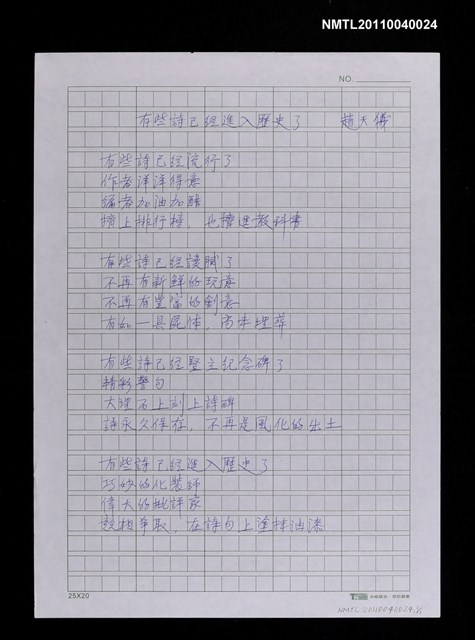 NMTL20110040024
NO.
有些詩已經進入歷史了 趙天儀
有些詩已經流行了
作者洋洋得意
編者加油加醋
擠上排行榜，也擠進教科書
有些詩已經讀膩了
不再有新鮮的玩意
不再有豐富的創意
有如一具屍体，尚未埋葬
有些詩已經豎立紀念碑了
精彩警句
大理石上刻上詩碑
詩永久保存，不再是風化的出土
有些詩已經進入歷史了
巧妙的化裝師
偉大的批評家
競相爭取，在詩句上塗抹油漆
25X20
NMTL20110040024